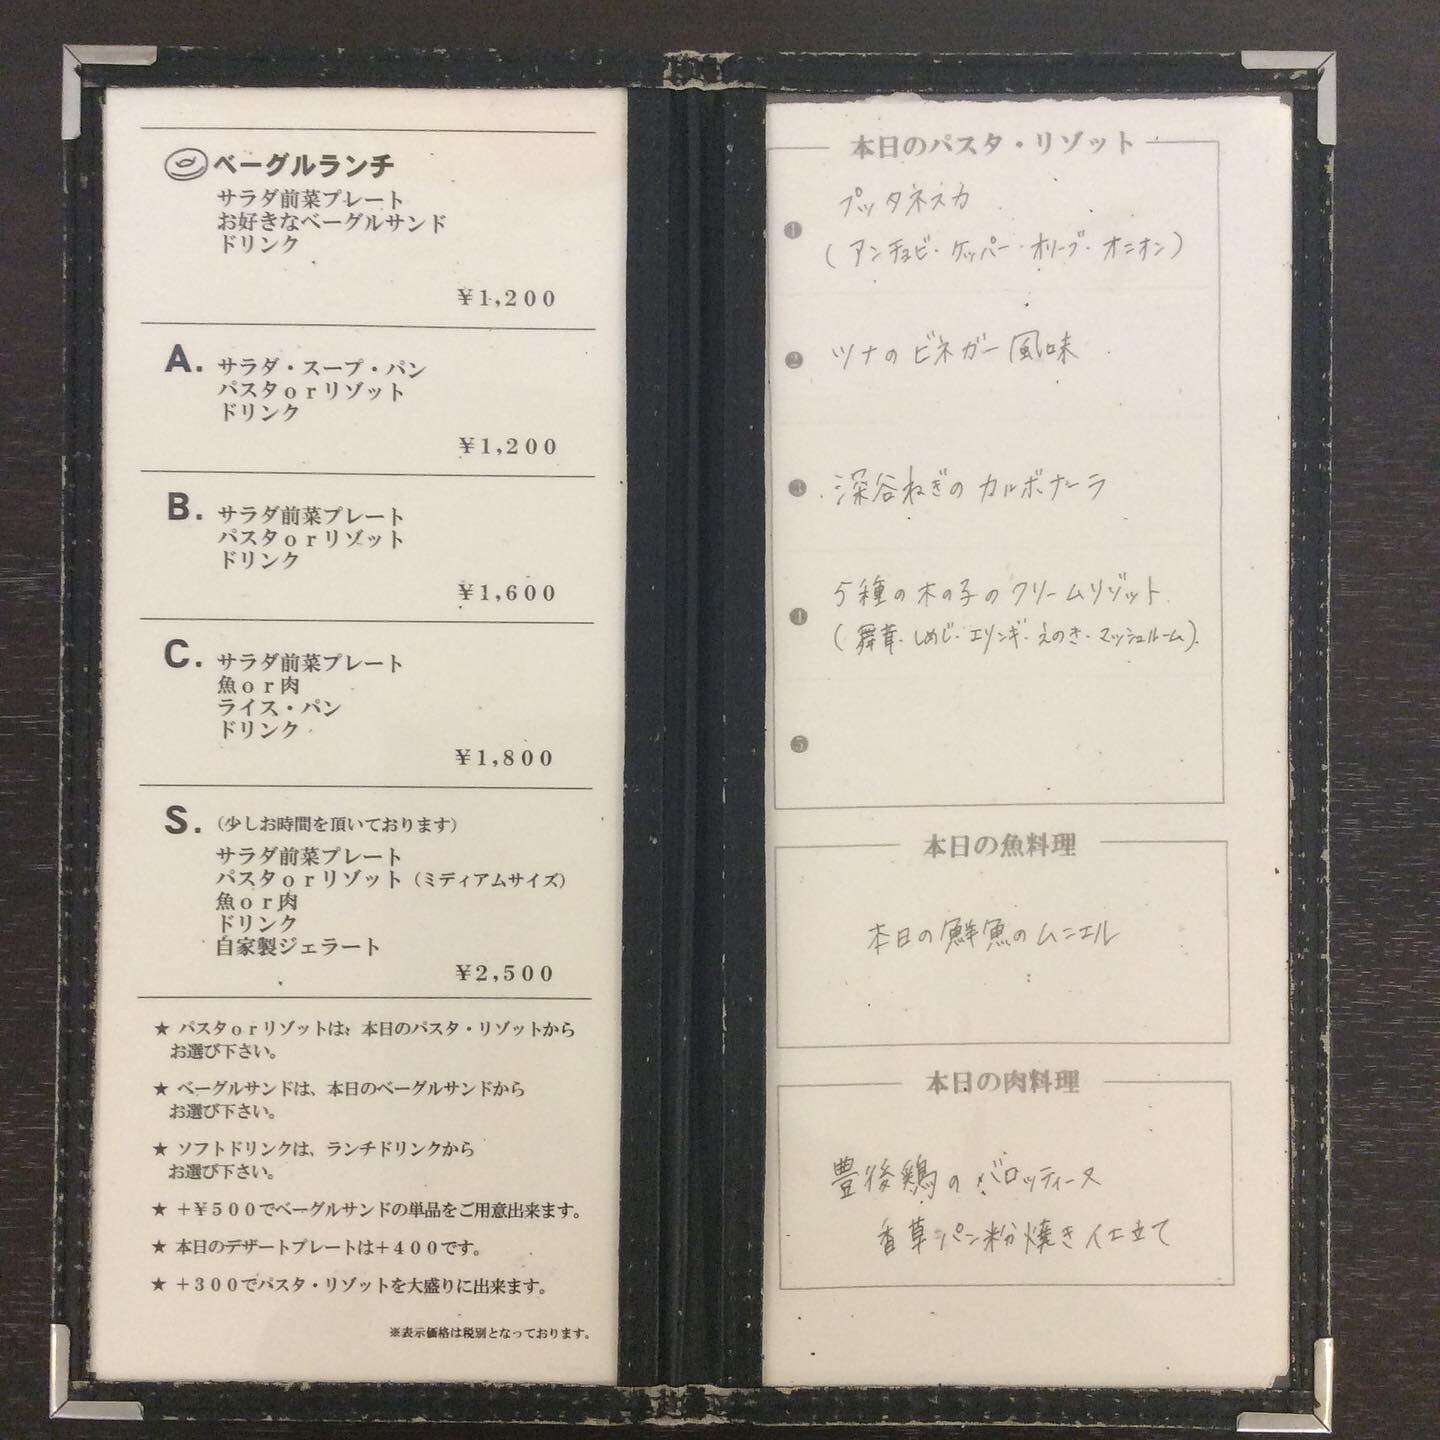 ベーグルランチ
サラダ前菜プレート
お好きなベーグルサンド
ドリンク
¥1,200
A. サラダ・スープ・パン
パスタorリゾット
ドリンク
¥1,200
B. サラダ前菜プレート
パスタorリゾット
ドリンク
¥1,600
C. サラダ前菜プレート
魚or肉
ライス・パン
ドリンク
¥1,800
S. (少しお時間を頂いております)
サラダ前菜プレート
パスタorリゾット(ミディアムサイズ)
魚or肉
ドリンク
自家製ジェラート
¥2,500
★ パスタorリゾットは、本日のパスタ・リゾットから
お選び下さい。
★ ベーグルサンドは、本日のベーグルサンドから
お選び下さい。
★ ソフトドリンクは、ランチドリンクから
お選び下さい。
★ +¥500でベーグルサンドの単品をご用意出来ます。
★ 本日のデザートプレートは+400です。
★ +300でパスタ・リゾットを大盛りに出来ます。
※表示価格は税別となっております。
本日のパスタ・リゾット
❶ プッタネスカ
(アンチョビ・ケッパー・オリーブ・オニオン)
❷ ツナのビネガー風味
❸ 深谷ねぎのカルボナーラ
❹ 5種の木の子のクリームリゾット
(舞茸・しめじ・エリンギ・えのき・マッシュルーム)
❺
本日の魚料理
本日の鮮魚のムニエル
本日の肉料理
豊後鶏のバロッティーヌ
香草パン粉焼き仕立て